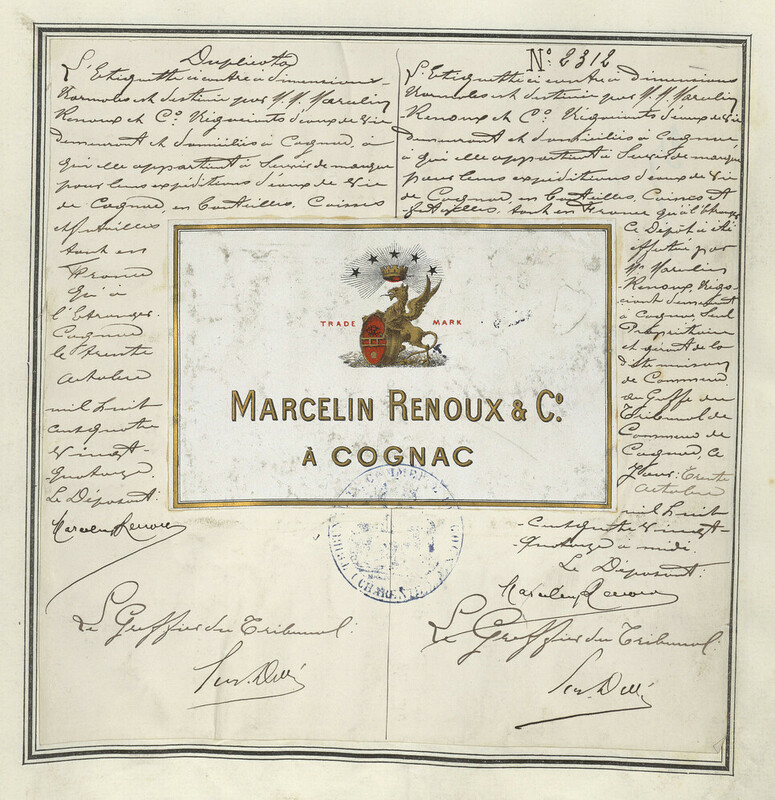 Duplicata
L'Etiquette ci contre à dimensions
Normales est destinée par M.M. Marcelin
Renoux et Co. Négociants d'eaux de vie
demeurant et domiciliés à Cognac, à
qui elle appartient à Servir de marque
pour leurs expéditions d'eaux de Vie
de Cognac, en Bouteilles, Caisses
et futailles
tant en
France
qu'à
l'Etranger.
Cognac
le trente
octobre
mil huit
cent quatre
vingt-
quatorze.
Le Déposant:
Marcelin Renoux
Le Greffier du Tribunal:
No: 2312
L'Etiquette ci contre à dimensions
Normales est destinée par M.M. Marcelin
Renoux et Co. Négociants d'eaux de Vie
demeurant et domiciliés à Cognac
à qui elle appartient à Servir de marque
pour leurs expéditions d'eaux de Vie
de Cognac, en Bouteilles, Caisses et
futailles, tant en France qu'à l'Etranger
Ce Dépôt a été
effectué par
Mr Marcelin
Renoux, Négo-
ciant demeurant
à Cognac, Seul
Propriétaire
et gérant de la
dite maison
de Commerce
au Greffe du
Tribunal de
Commerce de
Cognac, ce
Jour: trente
octobre
mil huit
cent quatre vingt-
quatorze à midi.
Le Déposant:
Marcelin Renoux
Le Greffier du Tribunal:
TRADE MARK
MARCELIN RENOUX & Co.
À COGNAC
COMMERCE
(CHARENTE)